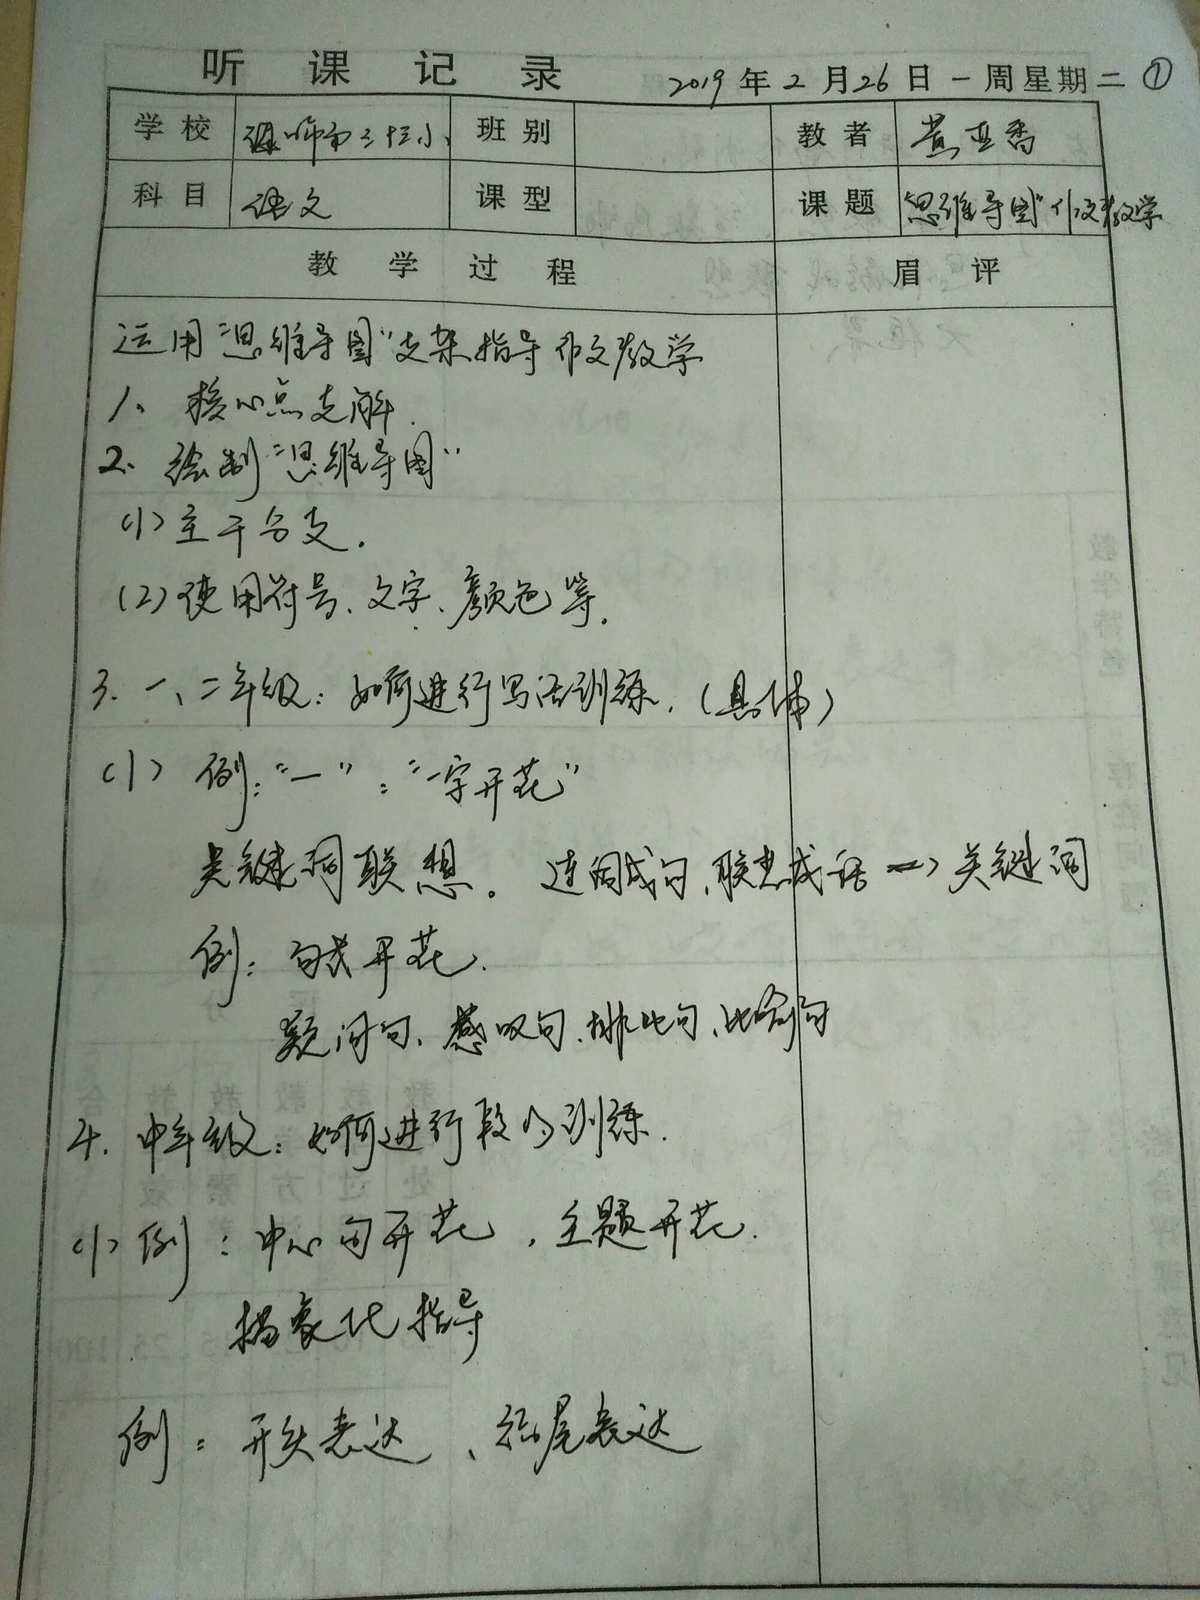 听课记录 2019年2月26日一周星期二 ①
学校 师市三社小 班别 教者 黄亚香
科目 语文 课型 课题 "思维导图"作文教学
教学过程 眉评
运用"思维导图"支架指导作文教学
1、核心点支解.
2、绘制"思维导图"
(1)主干分支.
(2)使用符号、文字、颜色等.
3. 一、二年级:如何进行写话训练.(具体)
(1) 例:"一":"一字开花"
关键词联想。连词成句、联想成话 关键词
例:句式开花.
疑问句、感叹句、排比句、比喻句
4. 中年级:如何进行段的训练.
(1)例:中心句开花,主题开花.
象化指导
例:开头表达、结尾表达